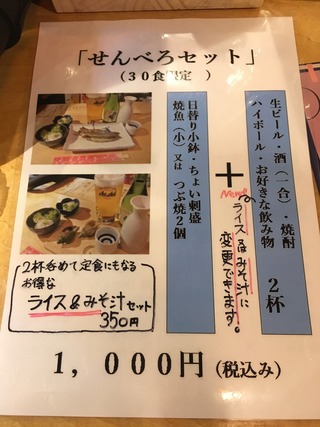 「せんべろセット」
(30食限定 )
生ビール・酒(一合)・焼酎
ハイボール・お好きな飲み物 2杯
+
Menuを
ライス&みそ汁に
変更できます。
日替り小鉢・ちょい刺盛
焼魚(小)又は つぶ焼2個
2杯呑めて定食にもなる
お得な
ライス&みそ汁セット
350円
1,000円(税込み)